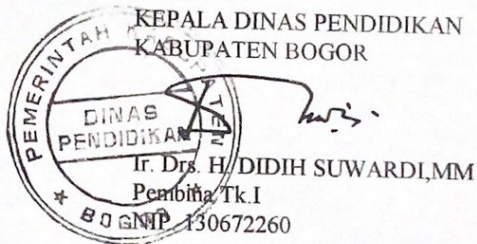 KEPALA DINAS PENDIDIKAN
KABUPATEN BOGOR
PEMERINTAH KABUPATEN
DINAS
PENDIDIKAN
BOGOR
Ir. Drs. H. DIDIH SUWARDI,MM
Pembina Tk.I
NIP 130672260